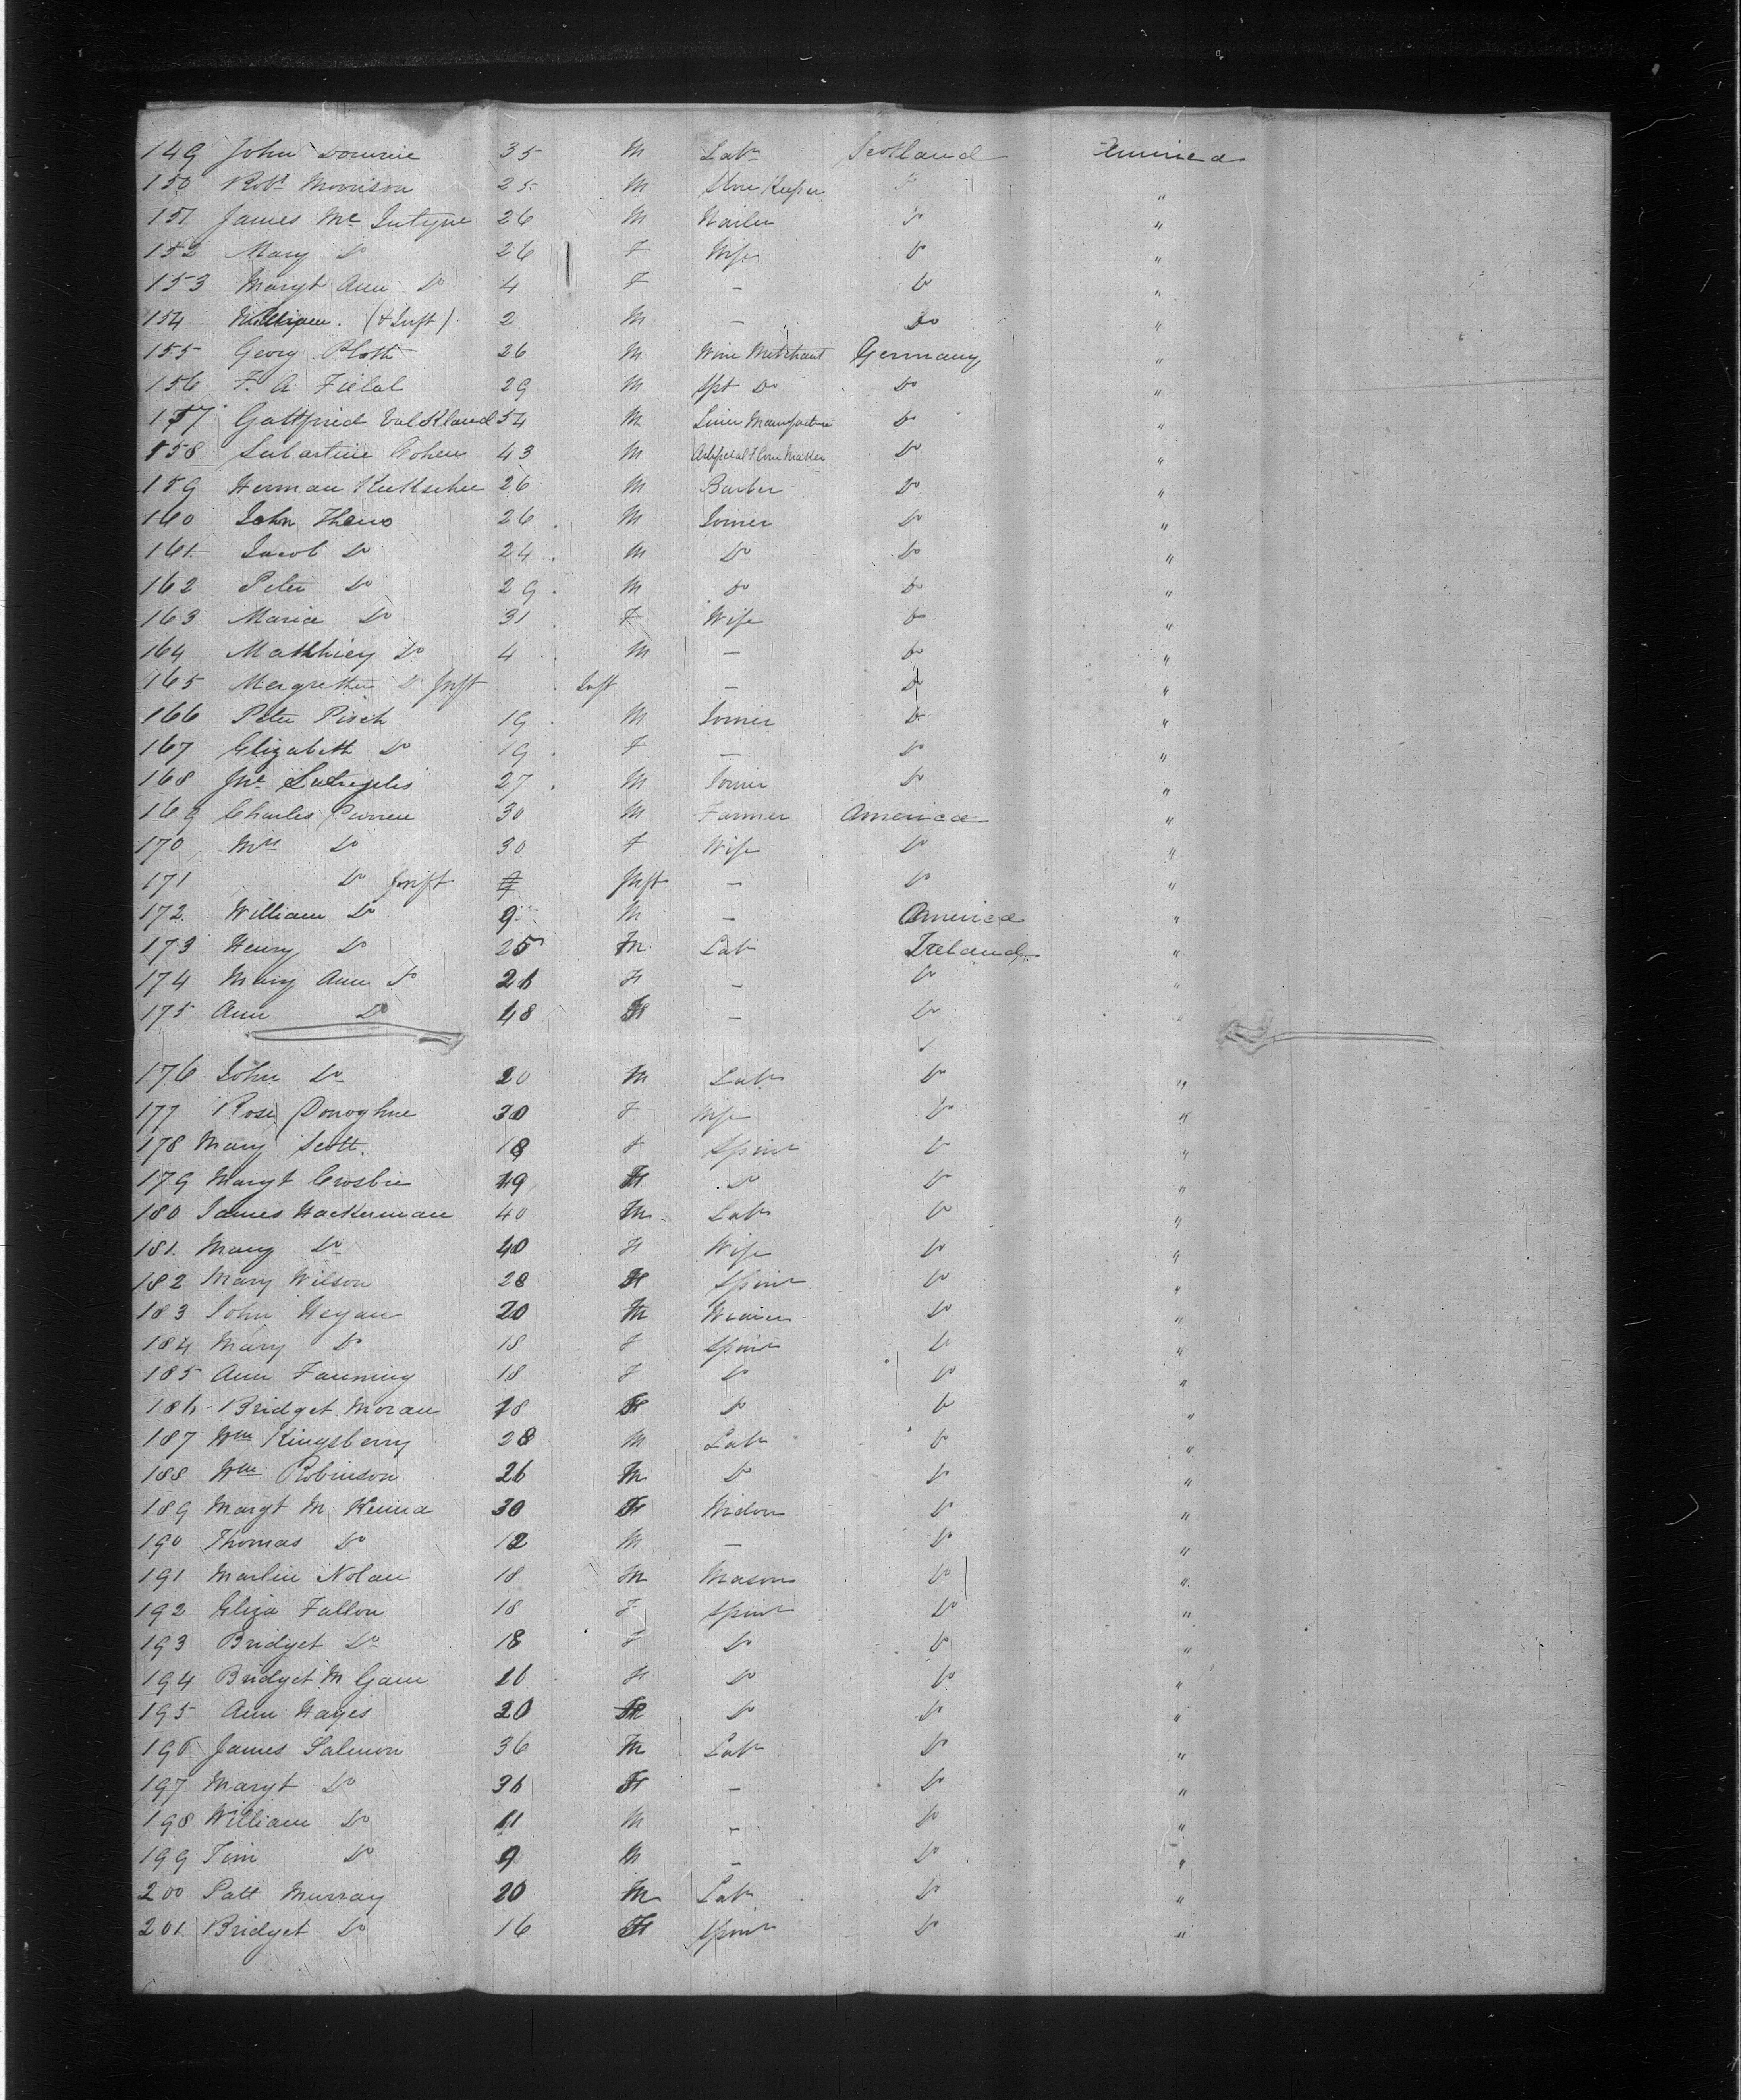 149 John Downie 35 M Labr Scotland America
150 Robt Morrison 25 M Store Keeper Do "
151 James Mc Intyre 26 M Nailer Do "
152 Mary Do 26 F Wife Do "
153 Margt Ann Do 4 F - Do "
154 William. (& Inft) 2 M - Do "
155 Georg Ploth 26 M Wine Merchant Germany "
156 F. A 29 M Spt Do Do "
157 Gottfried 54 M Do "
158 Cohen 43 M Artificial Flower Maker Do "
159 Herman 26 M Barber Do "
160 John Theno 26 M Joiner Do "
161 Jacob Do 24 M Do Do "
162 Peter Do 29 M Do Do "
163 Maria Do 31 F Wife Do "
164 Do 4 M - Do "
165 Do Inft Inft - Do "
166 Peter Pisch 19 M Joiner Do "
167 Elizabeth Do 19 F - Do "
168 27 M Joiner Do "
169 Charles 30 M Farmer America "
170 Mrs Do 30 F Wife Do "
171 Do Inft Inft - Do "
172 William Do 9 M - America "
173 Henry Do 25 M Labr Ireland "
174 Mary Ann Do F - Do "
175 Ann Do 48 F - Do "
176 John Do 20 M Labr Do "
177 Rose Donoghue 30 F Wife Do "
178 Mary Scott. 18 F Spinr Do "
179 Margt Crosbie 19 F Do Do "
180 James Hackerman 40 M Labr Do "
181 Mary Do 40 F Wife Do "
182 Mary Wilson 28 F Spinr Do "
183 John Hegan 20 M Weaver Do "
184 Mary Do 18 F Spinr Do "
185 Ann Fanning 18 F Do Do "
186 Bridget Moran 18 F Do Do "
187 Wm Kingsberry 28 M Labr Do "
188 Wm Robinson 26 M Do Do "
189 Margt Mc Kenna 30 F Widow Do "
190 Thomas Do 12 M - Do "
191 Martin Nolan 18 M Mason Do "
192 Eliza Fallon 18 F Spinr Do "
193 Bridget Do 18 F Do Do "
194 Bridget M Gann F Do Do "
195 Ann Hayes 20 F Do Do "
196 James Salmon 36 M Labr Do "
197 Margt Do 36 F - Do "
198 William Do 11 M - Do "
199 Tim Do 9 M - Do "
200 Patt Murray 20 M Labr Do "
201 Bridget Do 16 F Spinr Do "